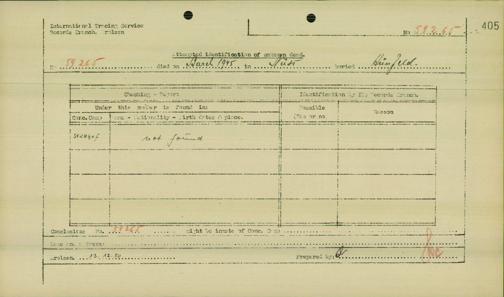 International Tracing Service
Records Branch. Arolsen
405
No 59265
Attempted identification of unknown dead.
Nr. 59265 died on March 1945 in Nüst buried Hünfeld
Checking - Report
Identification by the Records Branch.
Under this number is found in:
Conc.Camp Name - Nationality - Birth dates & place.
Possible
Reason
not found
Conclusions No. 59265 might be inmate of Conc. Camp
Arolsen, 13.12.50
Prepared by: